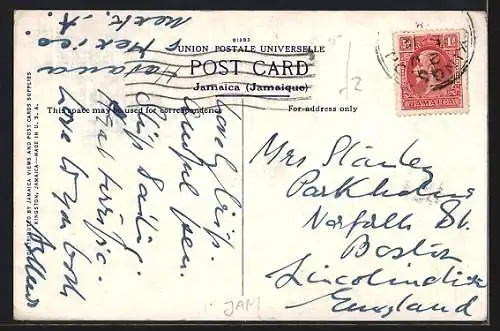 91393
UNION POSTALE UNIVERSELLE
POST CARD
Jamaica (Jamaique)
This space may be used for correspondence
For address only
DISTRIBUTED BY JAMAICA VIEWS AND POST CARDS SUPPLIES
KINGSTON, JAMAICA—MADE IN U. S. A.
Lovely trip.
ful sea.
Ship
terrific.
Love to you both
Havana
& Mexico
next. A
1d
JAMAICA
Mrs Stanley
Parkholme
Norfolk St.
Boston
Lincolnshire
England
JAM